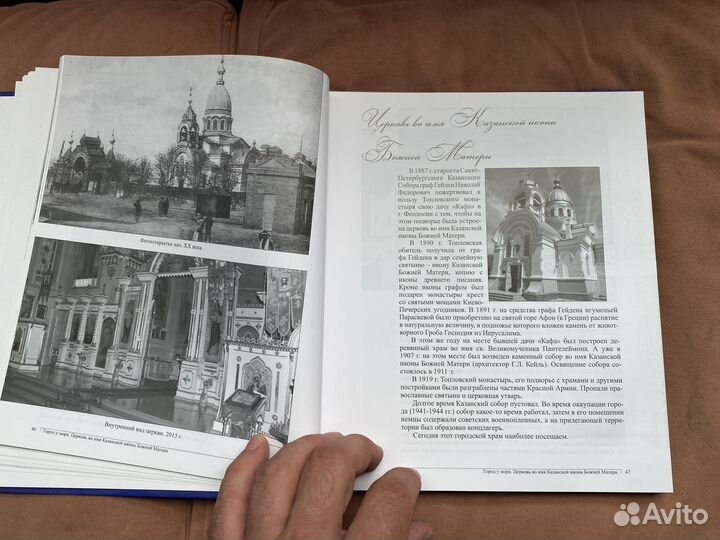 Фотооткрытка нач. XX века
Внутренний вид церкви. 2013 г.
46 Город у моря. Церковь во имя Казанской иконы Божией Матери
Церковь во имя Казанской иконы
Божией Матери
В 1887 г. староста Санкт-
Петербургского Казанского
Собора граф Гейден Николай
Федорович пожертвовал в
пользу Топловского монас-
тыря свою дачу «Кафа» в
г. Феодосии с тем, чтобы на
этом подворье была устрое-
на церковь во имя Казанской
иконы Божией Матери.
В 1890 г. Топловская
обитель получила от гра-
фа Гейдена в дар семейную
святыню – икону Казанской
Божией Матери, копию с
иконы древнего писания.
Кроме иконы графом был
подарен монастырю крест
со святыми мощами Киево-
Печерских угодников. В 1891 г. на средства графа Гейдена игуменьей
Параскевой было приобретено на святой горе Афон (в Греции) распятие
в натуральную величину, в подножье которого вложен камень от живот-
ворного Гроба Господня из Иерусалима.
В этом же году на месте бывшей дачи «Кафа» был построен де-
ревянный храм во имя св. Великомученика Пантелеимона. А уже в
1907 г. на этом месте был возведен каменный собор во имя Казанской
иконы Божией Матери (архитектор Г.Л. Кейль). Освящение собора со-
стоялось в 1911 г.
В 1919 г. Топловский монастырь, его подворье с храмами и другими
постройками были разграблены частями Красной Армии. Пропали пра-
вославные святыни и церковная утварь.
Долгое время Казанский собор пустовал. Во время оккупации горо-
да (1941-1944 гг.) собор какое-то время работал, затем в его помещении
немцы содержали советских военнопленных, а на прилегающей терри-
тории был образован концлагерь.
Сегодня этот городской храм наиболее посещаем.
Город у моря. Церковь во имя Казанской иконы Божией Матери 47
Avito